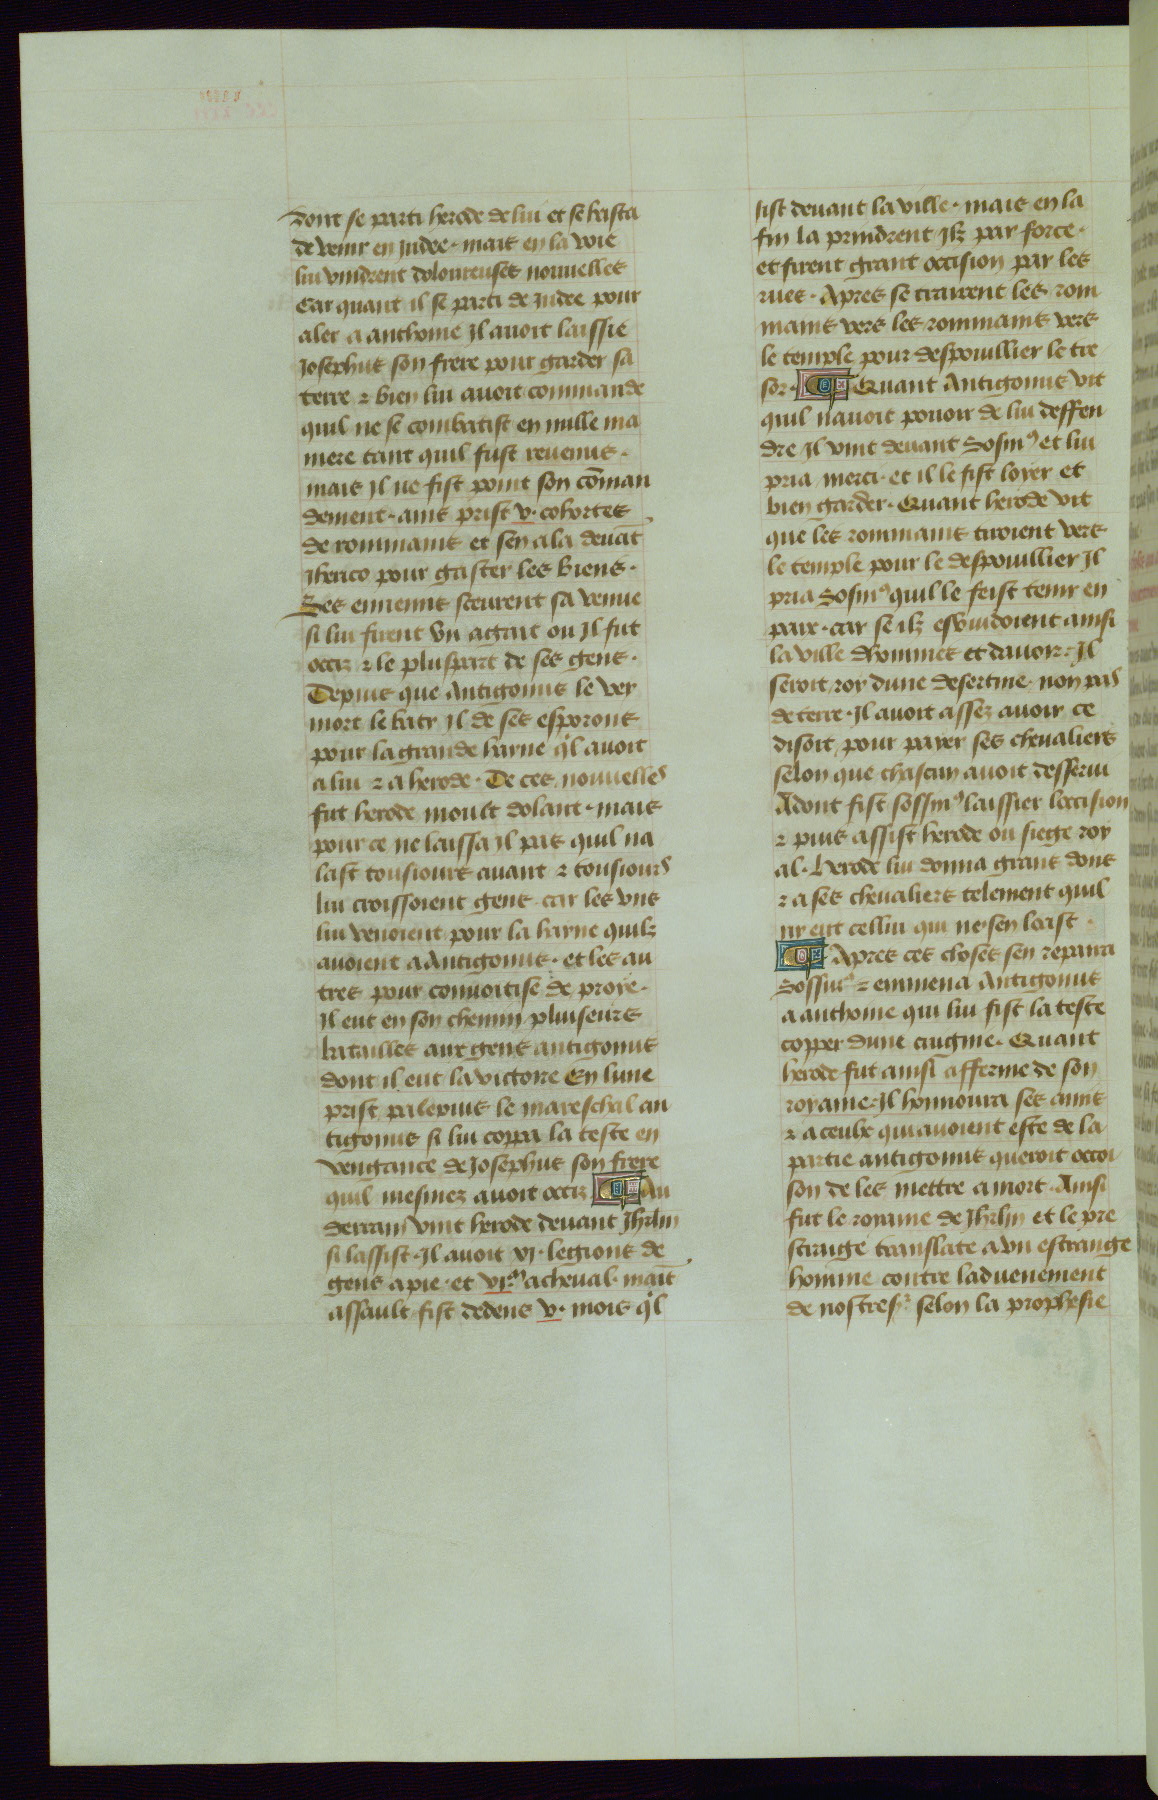 dont se parti herode de lui et se hasta
de venir en judee · mais en la voie
lui vindrent doloureuses nouvelles
Car quant il se parti de judee pour
aler a anthoine Il avoit laissie
Josephus son frere pour garder sa
terre ⁊ bien lui avoit commande
quil ne se combatist en nulle ma
niere tant quil fust revenus ·
mais Il ne fist point son cōman
dement · ains prist v· cohortes
de rommains et sen ala devāt
Iherico pour gaster les biens ·
Ses ennemis sceurent sa venue
si lui firent vn agait ou Il fut
occiz ⁊ le pluspart de ses gens ·
Depuis que Antigonus le vey
mort le baty Il de ses esporons
pour la grande hayne q̇l avoit
a lui ⁊ a herode · De ces nouvelles
fut herode moult dolant · mais
pour ce ne laissa Il pas quil na
last tousiours avant ⁊ tousiours
lui croissoient gens · car les vns
lui venoient pour la hayne quilz
avoient a Antigonus · et les au
tres pour convoitise de proye ·
Il eut en son chemin pluiseurs
batailles aux gens antigonus
dont il eut la victoire En lune
prist palepius le mareschal an
tigonus si lui coppa la teste en
vengance de Josephus son frere
quil mesmez avoit occiz · Au
derrain vint herode devant Jhrlm
si lassist · Il avoit vj· legions de
gens a pie · et vj.ᵐ a cheval · maīt
assault fist dedens v· mois q̇l
sist devant la ville · mais en la
fin la prindrent Ilz par force ·
et firent grant occision par les
rues · Apres se trairent les rom
mains vers les rommains vers
le temple pour despouillier le tre
sor · Quant Antigonus vit
quil navoit povoir de lui deffen
dre Il vint devant Sosinꝰ et lui
pria merci · et il le fist loyer et
bien garder · Quant herode vit
que les rommains tiroient vers
le temple pour le despouillier Il
pria Sosinꝰ quil le feist tenir en
paix · car se ilz esvuidoient ainsi
la ville dhommes et davoir · Il
seroit roy dune desertine · non pas
de terre · Il avoit assez avoir ce
disoit pour payer ses chevaliers
selon que chascun avoit desservi
Adont fist sossinꝰ laissier loccision
⁊ puis assist herode ou siege roy
al · herode lui donna grans dons
⁊ a ses chevaliers telement quil
ny eut cellui qui ne sen loast ·
Apres ces choses sen repaira
Sossinꝰ ⁊ emmena Antigonus
a anthoine qui lui fist la teste
copper dune cuignie · Quant
herode fut ainsi afferme de son
royaume · Il honnoura ses amis
⁊ a ceulx qui avoient este de la
partie antigonus queroit occoi
son de les mettre a mort · Ainsi
fut le royaume de Jhrlm et le pre
straige translate a vn estrange
homme contre ladvenement
de nostre sʳ selon la prophesie